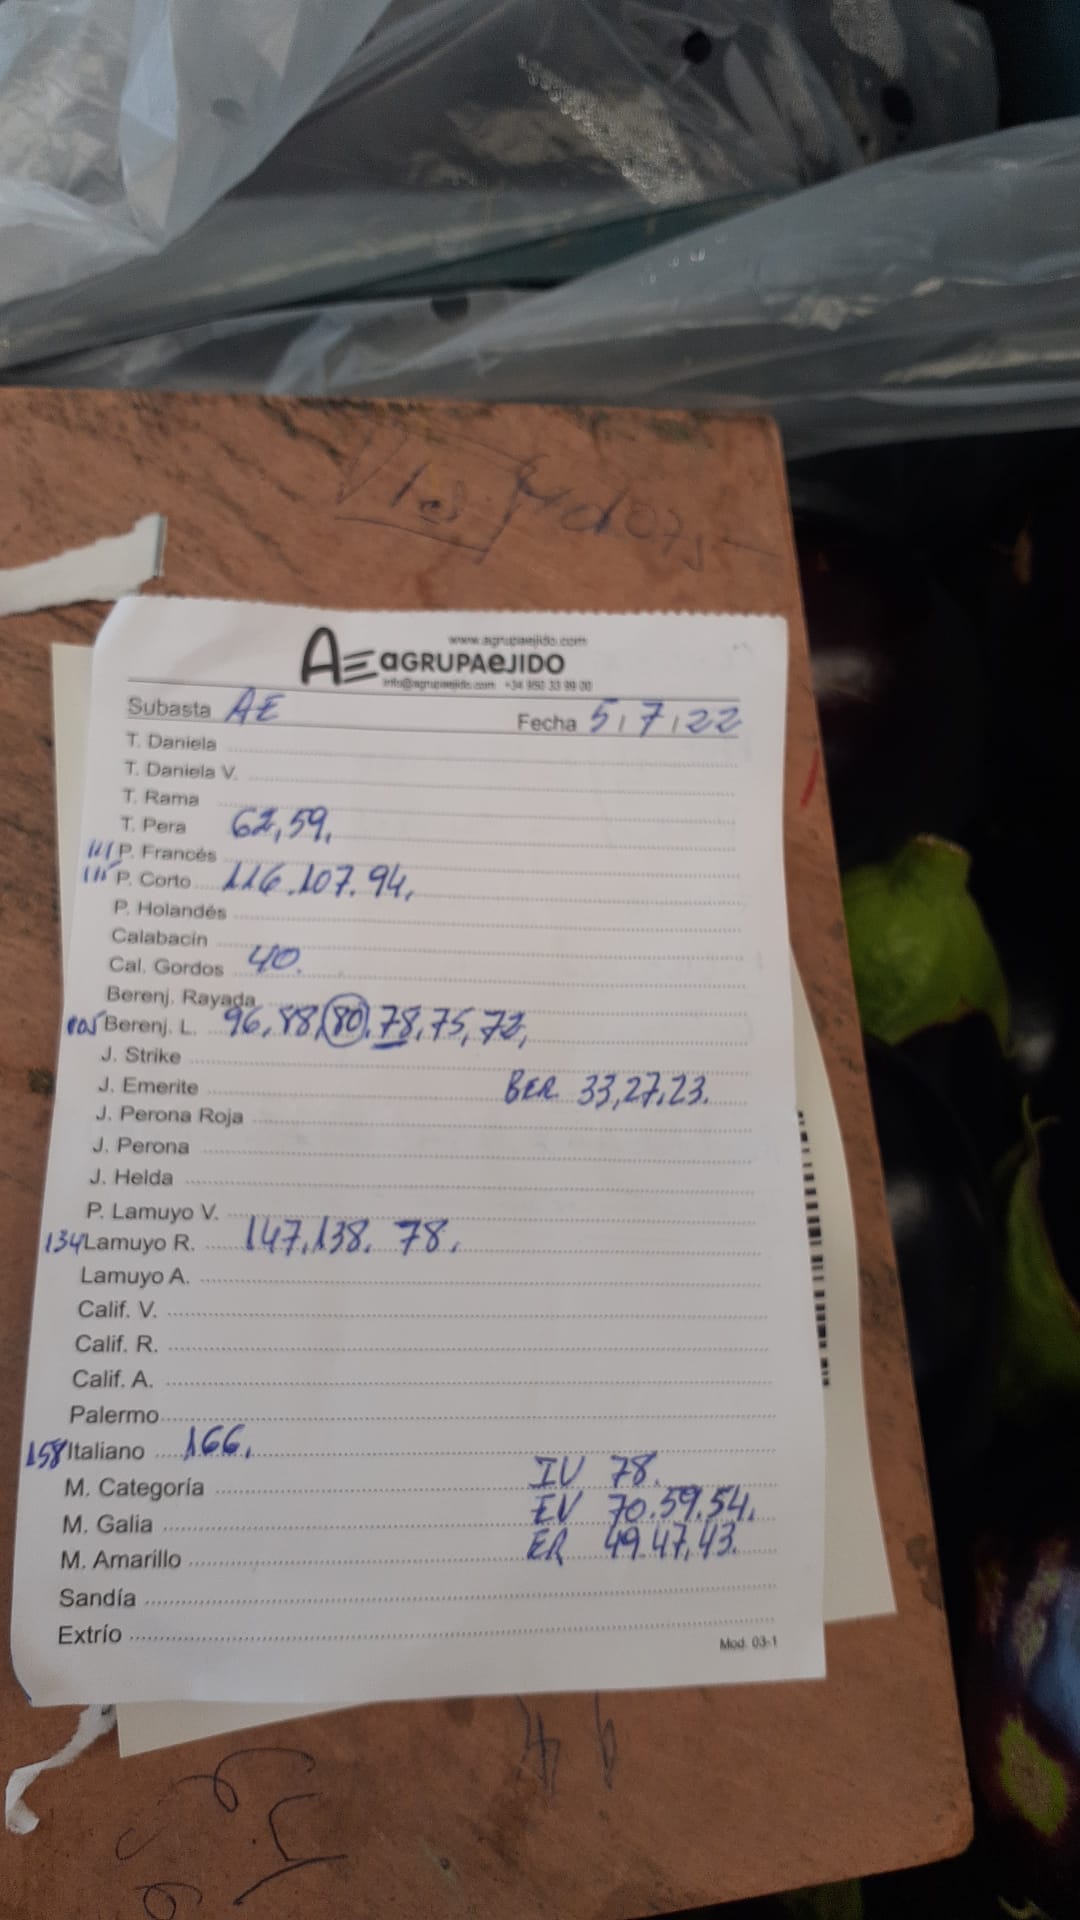 www.agrupaejido.com
AE aGRUPAeJIDO
info@agrupaejido.com +34 950 33 99 00
Subasta AE Fecha 5/7/22
T. Daniela
T. Daniela V.
T. Rama
T. Pera 62,59.
111 P. Francés
111 P. Corto 116.107.94.
P. Holandés
Calabacín
Cal. Gordos 40.
Berenj. Rayada
105 Berenj. L. 96,88,80.78,75,72,
J. Strike
J. Emerite BER 33,27,23.
J. Perona Roja
J. Perona
J. Helda
P. Lamuyo V.
134 Lamuyo R. 147,138. 78.
Lamuyo A.
Calif. V.
Calif. R.
Calif. A.
Palermo
158 Italiano 166.
M. Categoría IV 78.
M. Galia EV 70.59.54.
M. Amarillo ER 49.47,43.
Sandía
Extrío
Mod. 03-1